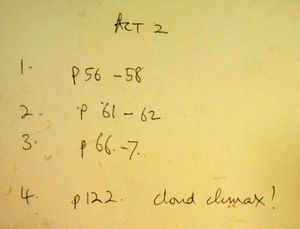 ACT 2
1. p 56 - 58
2. p 61 - 62
3. p 66 - 7.
4. p 122. cloud climax!